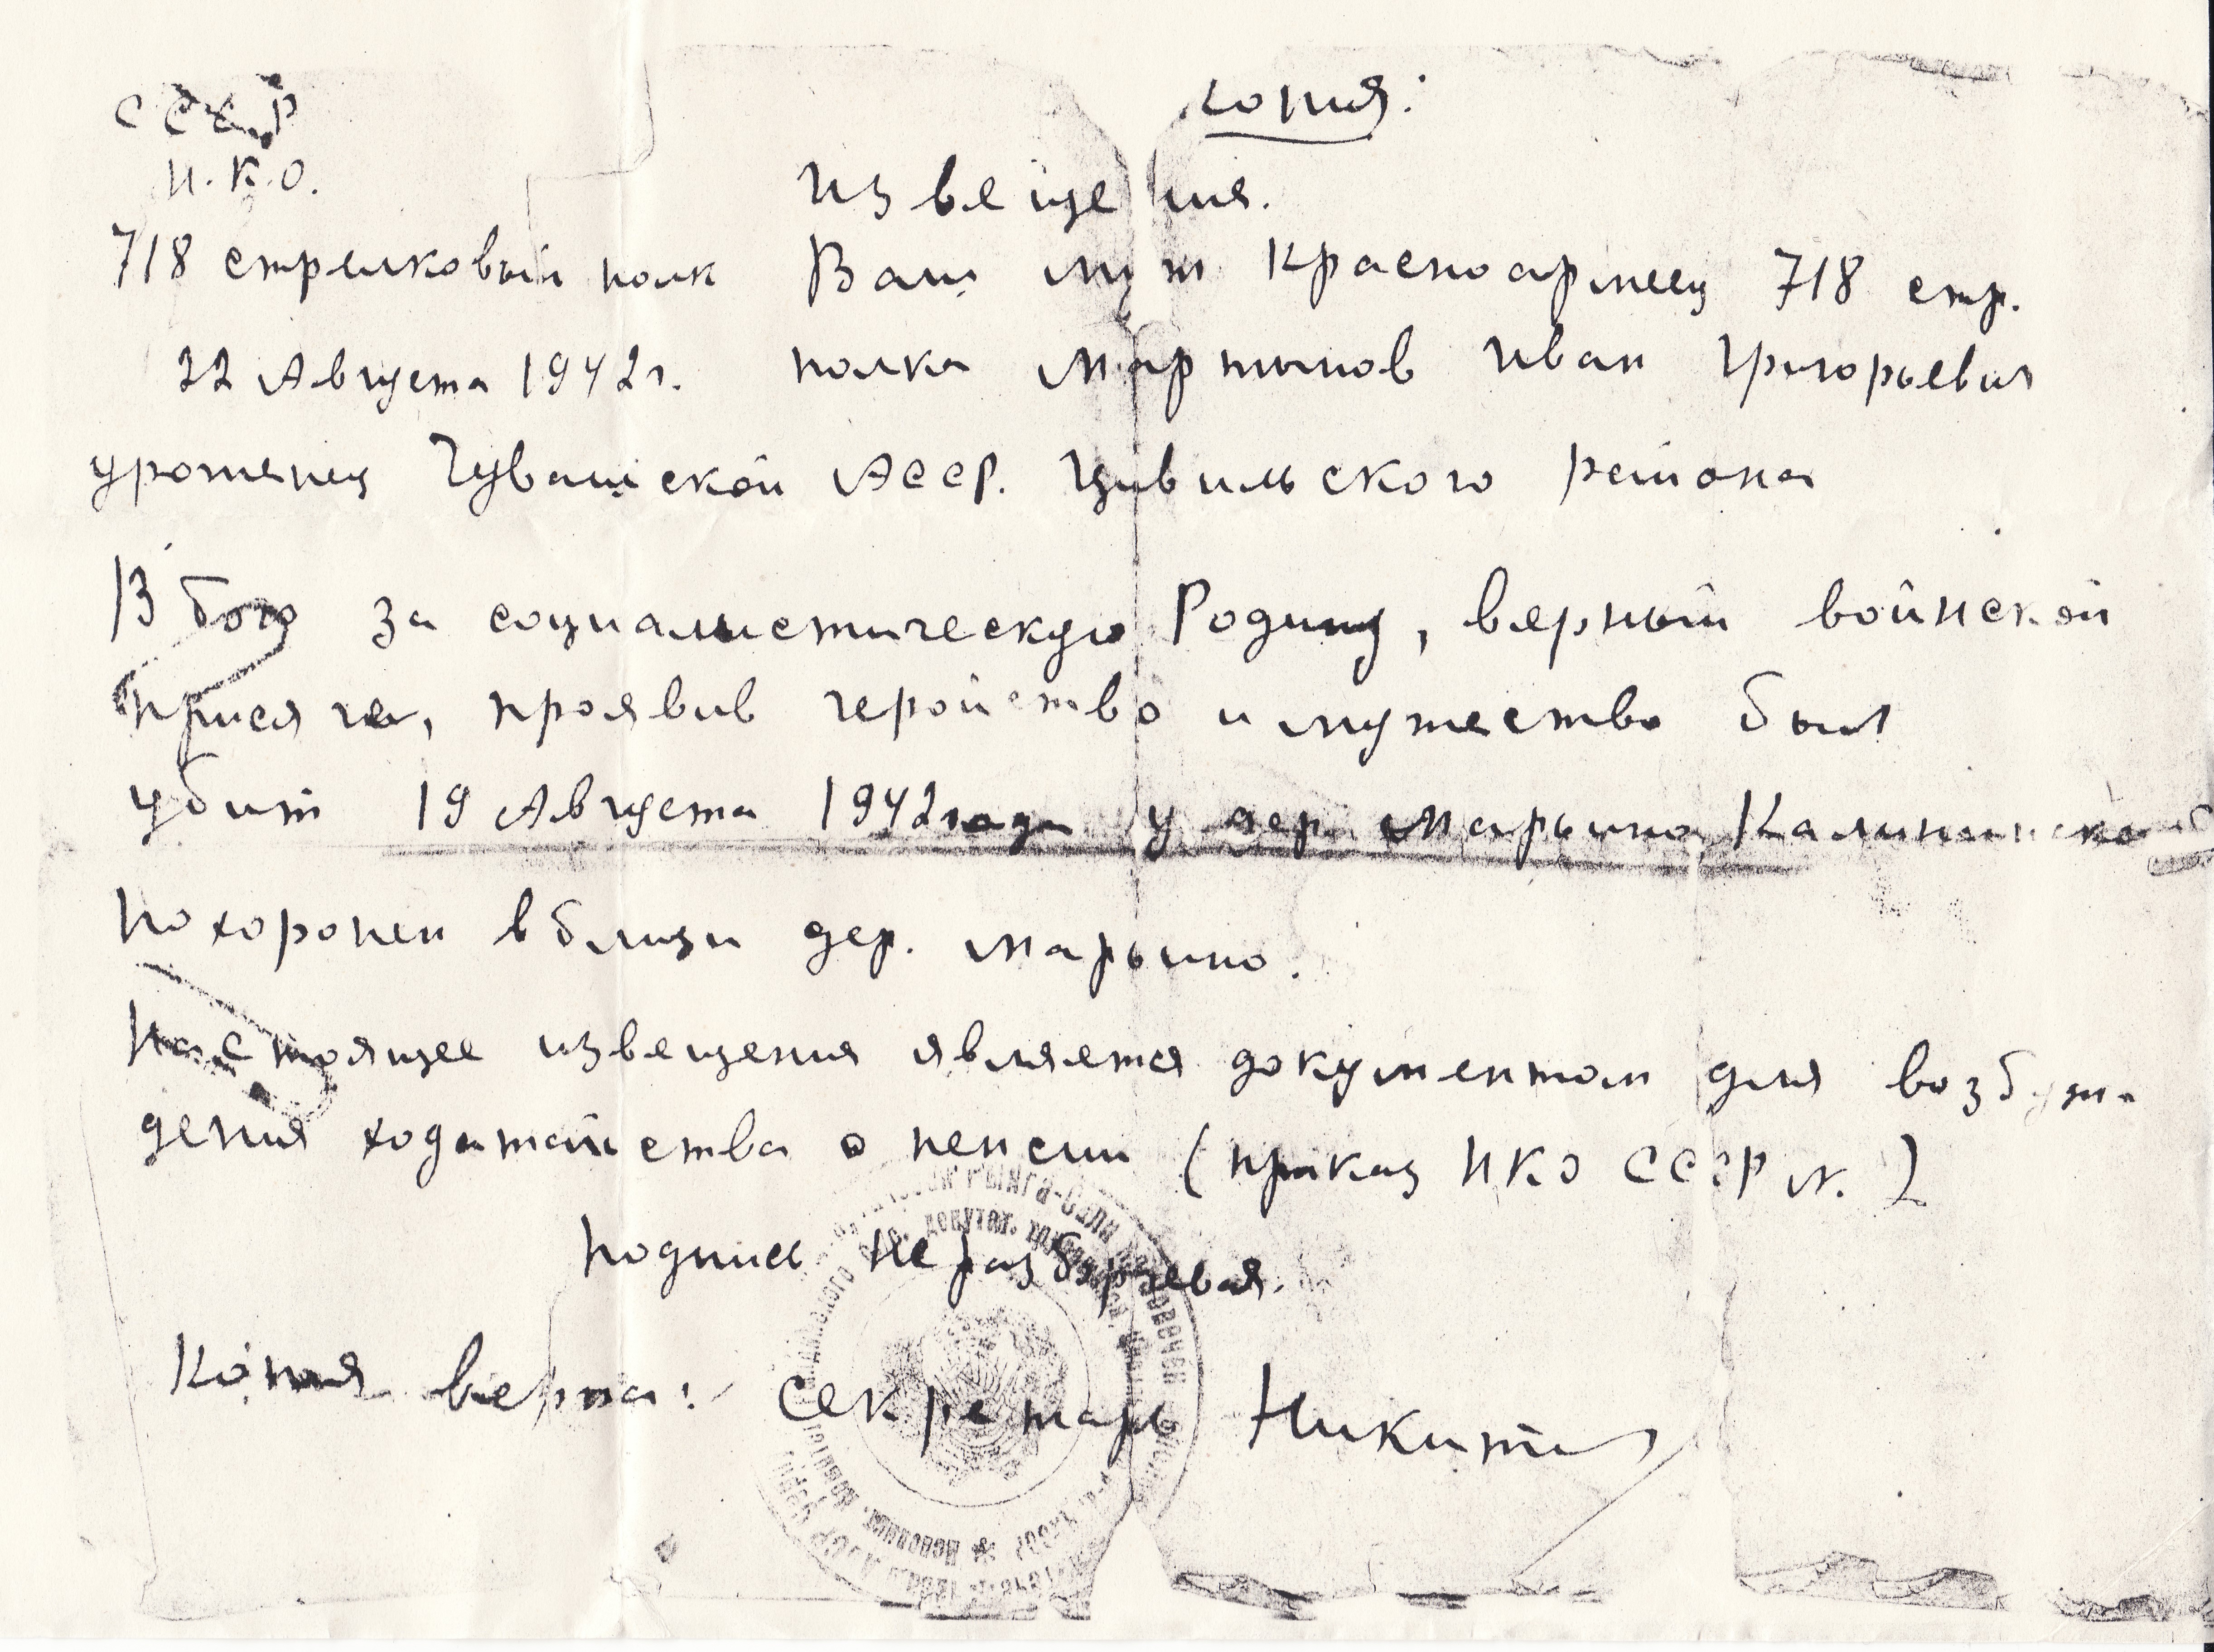 СССР
Н.К.О.
718 стрелковый полк
22 Августа 1942г.
Копия:
Извещения.
Ваш муж Красноармеец 718 стр.
полка Мартынов Иван Григорьевич
уроженец Чувашской АССР. Цивильского района
В бою за социалистическую Родину, верный войнской
присяге, проявив геройство и мужество был
убит 19 Августа 1942 года у дер Марьино, Калининско
похоронен вблизи дер. Марьино.
Настоящее извещения является документом для возбуж-
дения ходатайства о пенсии (приказ НКО СССР N. )
Подпись неразборчевая.
Копия верна: секретарь Никити